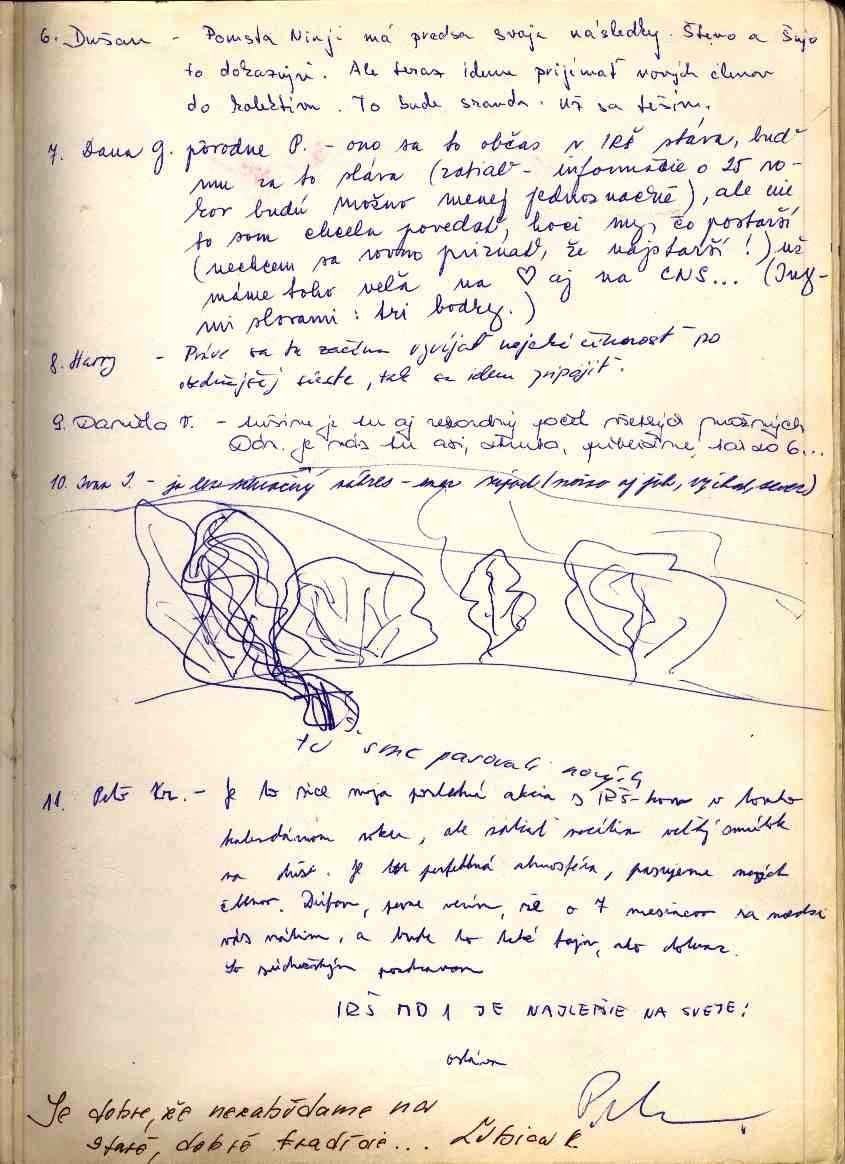 6. Dušan - Pomsta Ninji má predsa svoje následky. Števo a Šujo
to dokazujú. Ale teraz ideme prijímať nových členov
do kolektívu. To bude sranda. Už sa teším.
7. Dana G. pôvodne P. - ono sa to občas v IRŠ stáva, buď
mu za to sláva (zatiaľ - informácie o 25 ro-
kov budú možno menej jednoznačné), ale nie
to som chcela povedať, hoci my, čo postarší
(nechcem sa rovno priznať, že najstarší!) už
máme toho veľa na ♡ aj na CNS... (Iný-
mi slovami: tri bodky.)
8. Harry - Práve sa tu začína vyvíjať nejaká činnosť po
siеste, tak sa idem pripojiť.
9. Danita V. - je tu aj rekordný počet všetkých možných
Dán. je nás tu asi, približne, tak do 6...
10. Ivan J. - ja
tu sme pasovali nových
11. Peťo Kr. - Je to síce moja posledná akcia s IRŠ-kom v tomto
kalendárnom roku, ale zatiaľ necítim veľký smútok
na duši. Je tu perfektná atmosféra, pasujeme nových
členov. Dúfam, pevne verím, že o 7 mesiacov sa medzi
vás vrátim, a bude to také fajn, ako doteraz.
So pozdravom
IRŠ MD 1 JE NAJLEPŠIE NA SVETE!
ostáva
Je dobre, že nezabúdame na
staré, dobré tradície... Ľubica K